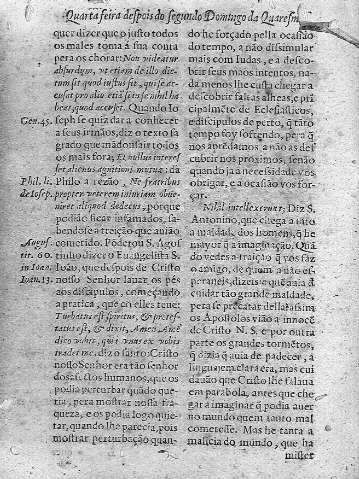 Quarta feira despois do segundo Domingo da Quaresm
quer dizer que o justo todos
os males toma à sua conta
pera os chorar: Non videatur
absurdum, ut etiam de illo dic-
tum sit quod iustus sit, qui se ac-
cusat pro alio etiã si in se nihil ha
beat, quod accuset. Quando Io
Gen. 45.
seph se quiz dar a conhecer
a seus irmãos, diz o texto sa
grado que mandou sair todos
os mais fora; Et nullus interes
set alienus agnitioni mutuæ; da
Phil. li.
de Iosep.
Philo a rezão; Ne fratribus
propter veterem iniuriam obue-
niret aliquod dedecus, porque
podião ficar infamados, sa-
bendose a treição que auião
cometido. Põderou S. Agos
August.
tit. 60
in Ioan.
Ioan. 13.
tinho dizer o Euangelista S.
Ioão, que despois de Cristo
nosso Senhor lauar os pés
aos discipulos, começando
a pratica, que cõ elles teue;
Turbatus est spiritu, & protes-
tatus est, & dixit, Amen Amẽ
dico vobis, quia unus ex vobis
tradet me. diz o santo: Cristo
nosso Senhor era tão senhor
dos affectos humanos, que os
podia perturbar quãdo que-
ria, pera mostrar nossa fra-
queza, e os podia logo quie-
tar, quando lhe parecia, pois
mostrar perturbação quan-
do he forçado pella ocasião
do tempo, a não dissimular
mais com Iudas, e a desco-
brir seus maos intentos, na-
da menos lhe custa chegar a
descubrir faltas alheas, e pri
cipalmẽte de Eclesiasticos,
e discipulos de perto, q̃ tãto
tempo foy sofrendo, pera q̃
nos aprẽdamos a não as des
cubrir nos proximos, senão
quando ja a necessidade vos
obrigar, e a ocasião vos for-
çar.
Nihil intellexerunt; Diz S.
Antonino, que chega a tãto
a maldade dos homẽs, q̃ he
mayor q̃ a imaginação. Quã
do vedes a traição q̃ vos faz
o amigo, de quem a não es-
peraueis, dizeis e quẽ auia de
cuidar tão grande maldade,
pera se precatar della? assim
os Apostolos vião a innocẽ
cia de Cristo N. S. e por outra
parte os grandes tormẽtos,
q̃ dizia q̃ auia de padecer, a
linguagem clara era, mas cui
dauão que Cristo lhe falaua
em parabola, antes que che
gar a imaginar q̃ podia auer
no mundo quem tanto mal
cometesse. Mas he tanta a
malicia do mundo, que ha
mister